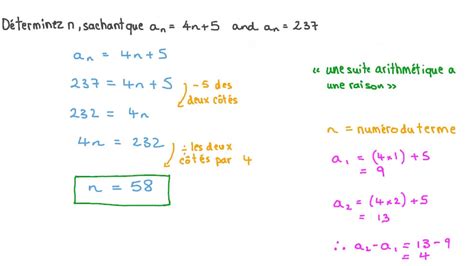 Déterminez n, sachant que aₙ = 4n+5 and aₙ = 237
aₙ = 4n+5
237 = 4n+5
-5 des
deux côtés
232 = 4n
4n = 232
÷ les deux
côtés par 4
n = 58
« une suite arithmétique a
une raison »
n = numéro du terme
a₁ = (4×1) + 5
= 9
a₂ = (4×2) + 5
= 13
∴ a₂-a₁ = 13-9
= 4